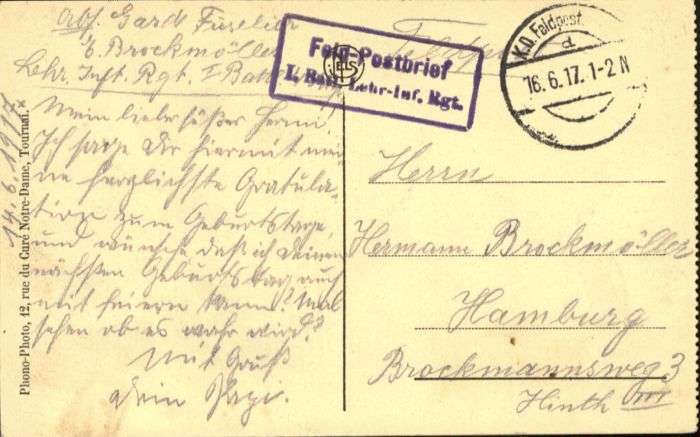 Abs. Gard Füselier
H. Brockmöller
Lehr. Inft. Rgt. I Batt.
Feldpost
Feld-Postbrief
I. Bat. Lehr-Inf. Rgt.
K.D. Feldpost
d
16.6.17. 1-2 N
14.6.1917
Mein lieber süßer Hermi!
Ich sage Dir hiermit mei-
ne herzlichste Gratula-
tion zum Geburtstage,
und wünsche daß ich deinen
nächsten Geburtstag auch
mit feiern kann? Mal
sehen ob es wahr wird?
Mit Gruß
Dein Papi.
Herrn
Hermann Brockmöller
Hamburg
Brockmannsweg 3
Hinth III
Phono-Photo, 42, rue du Curé Notre-Dame, Tournai.